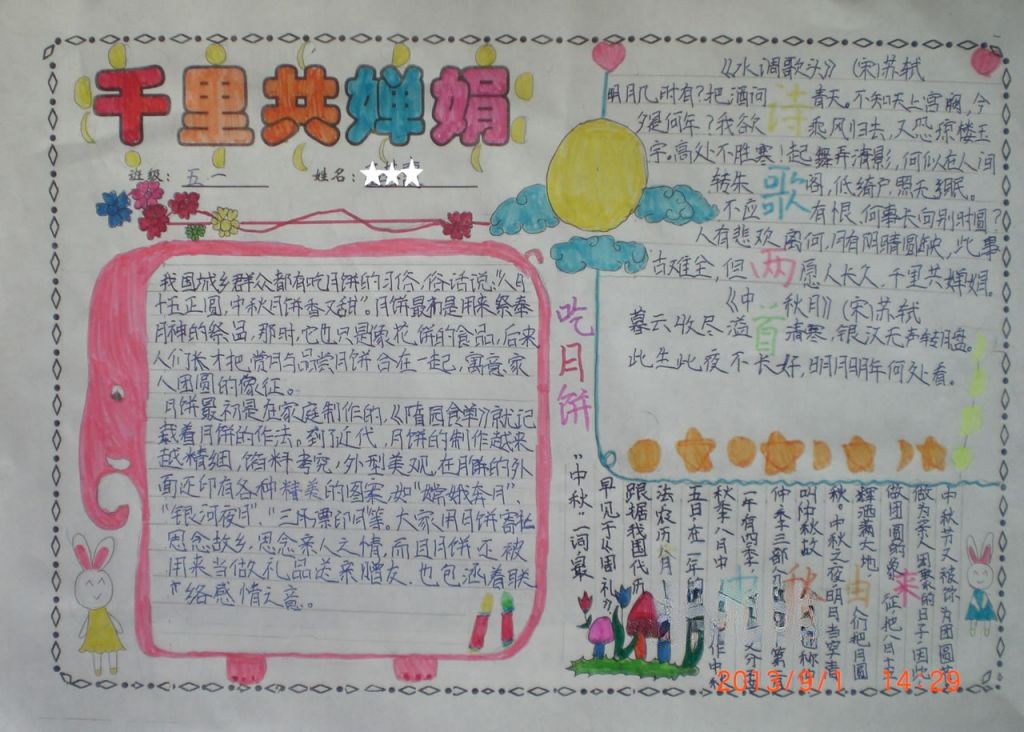 千里共婵娟
班级：五一
姓名：
我国城乡群众都有吃月饼的习俗，俗话说：“八月
十五正圆，中秋月饼香又甜”。月饼最初是用来祭奉
月神的祭品，那时，它也只是像花饼的食品，后来
人们张才把赏月与品尝月饼合在一起，寓意家
人团圆的像征。
月饼最初是在家庭制作的，《隋园食单》就记
载着月饼的作法。到了近代，月饼的制作越来
越精细，馅料考究，外型美观，在月饼的外
面还印有各种精美的图案，如“嫦娥奔月”、
“银河夜月”、“三潭票印月”等。大家用月饼寄托
思念故乡，思念亲人之情，而且月饼还被
用来当做礼品送亲赠友，也包涵着联
络感情之意。
吃月饼
《水调歌头》（宋）苏轼
明月几时有？把酒问青天。不知天上宫阙，今
夕是何年？我欲乘风归去，又恐琼楼玉
宇。高处不胜寒！起舞弄清影，何似在人间
转朱阁，低绮户，照无眠。
不应有恨，何事长向别时圆？
人有悲欢离何，月有阴晴圆缺，此事
古难全，但愿人长久，千里共婵娟。
诗歌两首
《中秋月》（宋）苏轼
暮云收尽溢清寒，银汉无声转月盘。
此生此夜不长好，明月明年何处看。
中秋由来
“中秋”一词，最
早见于《周礼》。
跟据我国古代历
法，农历八月
五日，在一年的
秋季八月中
一年有四季，
仲季三部分，
叫仲秋，故
秋。中秋之夜，明月当空，青
辉洒满大地，人们把月圆
做团圆的象征，把八月十五
做为亲人团聚的日子，因此，
中秋节又被称为团圆节
2013/9/1 14:29